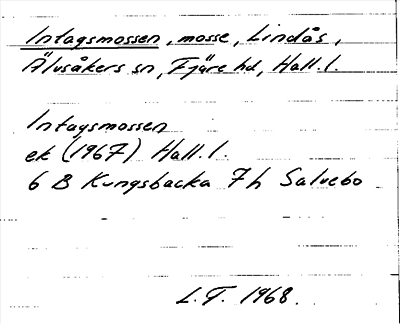 Intagsmossen, mosse, Lindås,
Älvsåkers sn, Fjäre hd, Hall. l.
Intagsmossen
ek (1967) Hall. l.
6 B Kungsbacka 7 h Salvebo
L.T. 1968.